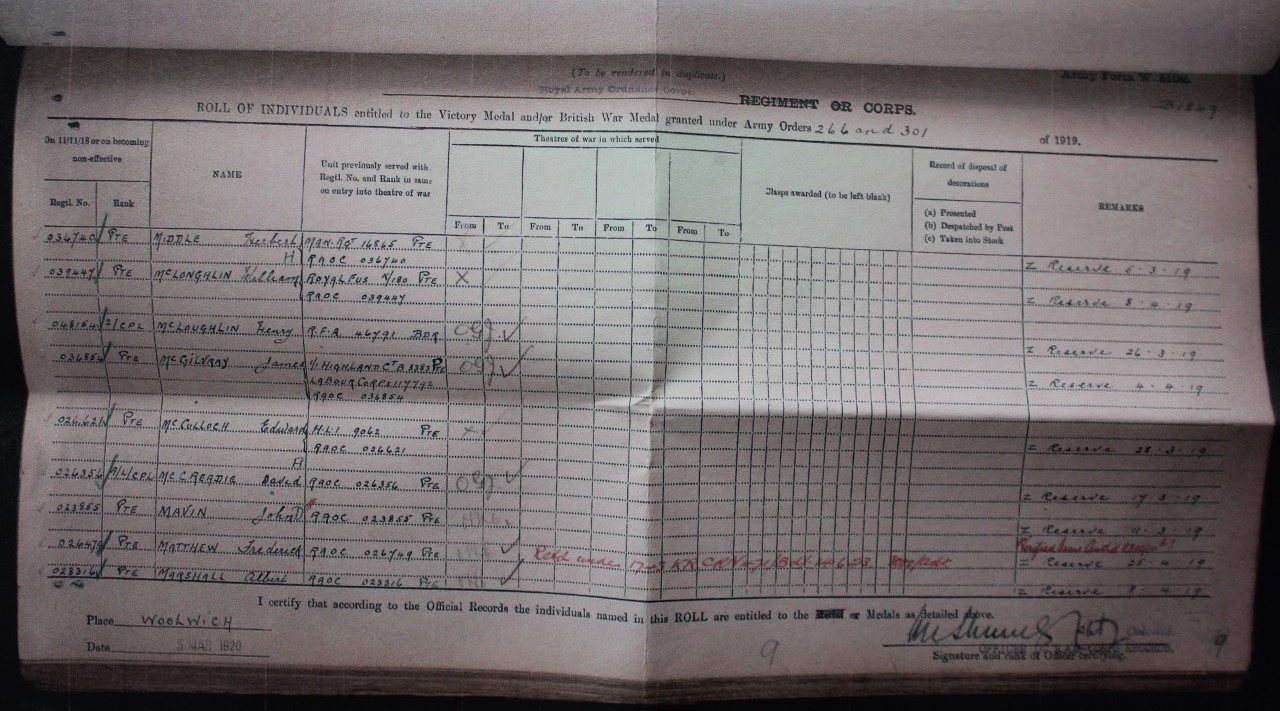 (To be rendered in duplicate.)
Army Form W. 5102.
Royal Army Ordnance Corps.
REGIMENT OR CORPS.
B1849
ROLL OF INDIVIDUALS entitled to the Victory Medal and/or British War Medal granted under Army Orders 266 and 301 of 1919.
On 11/11/18 or on becoming non-effective
NAME
Unit previously served with. Regtl. No. and Rank in same on entry into theatre of war
Theatres of war in which served
Clasps awarded (to be left blank)
Record of disposal of decorations
(a) Presented
(b) Despatched by Post
(c) Taken into Stock
REMARKS
Regtl. No. Rank
From To From To From To From To
036740 Pte MIDDLE Herbert H MAN. RGT 16565 Pte
RAOC 036740
Z Reserve 5-3-19
039447 Pte McLONGHLIN William ROYAL FUS Pte X
RAOC 039447
Z Reserve 8-4-19
048154 McLOUGHLIN Henry R.F.A. 46791 BDR
Z Reserve 26-3-19
036854 Pte McGILVRAY James HIGHLAND
LABOUR CORPS 117792
RAOC 036854
Z Reserve 4-4-19
026621 Pte McCULLOCH Edward H.L.I 9062 Pte X
RAOC 026621
Z Reserve 28-3-19
026356 A/L/CPL McCREADIE David A RAOC 026356 Pte
Z Reserve 17-3-19
023855 Pte MAVIN John D RAOC 023855 Pte
Z Reserve 11-3-19
Pte MATTHEW Frederick RAOC 026749 Pte
Retd under
Z Reserve 25-4-19
023316 Pte MARSHALL Albert RAOC 023316 Pte
Z Reserve 8-4-19
I certify that according to the Official Records the individuals named in this ROLL are entitled to the Medal or Medals as detailed above.
Place WOOLWICH
Date 5 MAR 1920
Colonel.
Signature and rank of Officer certifying.
9
9